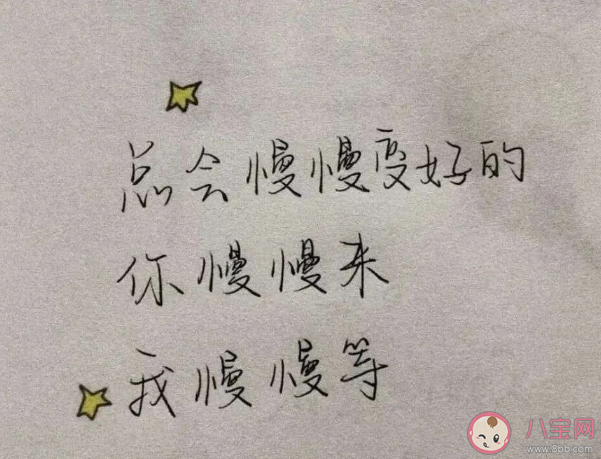 总会慢慢变好的
你慢慢来
我慢慢等
八宝网
www.8bb.com